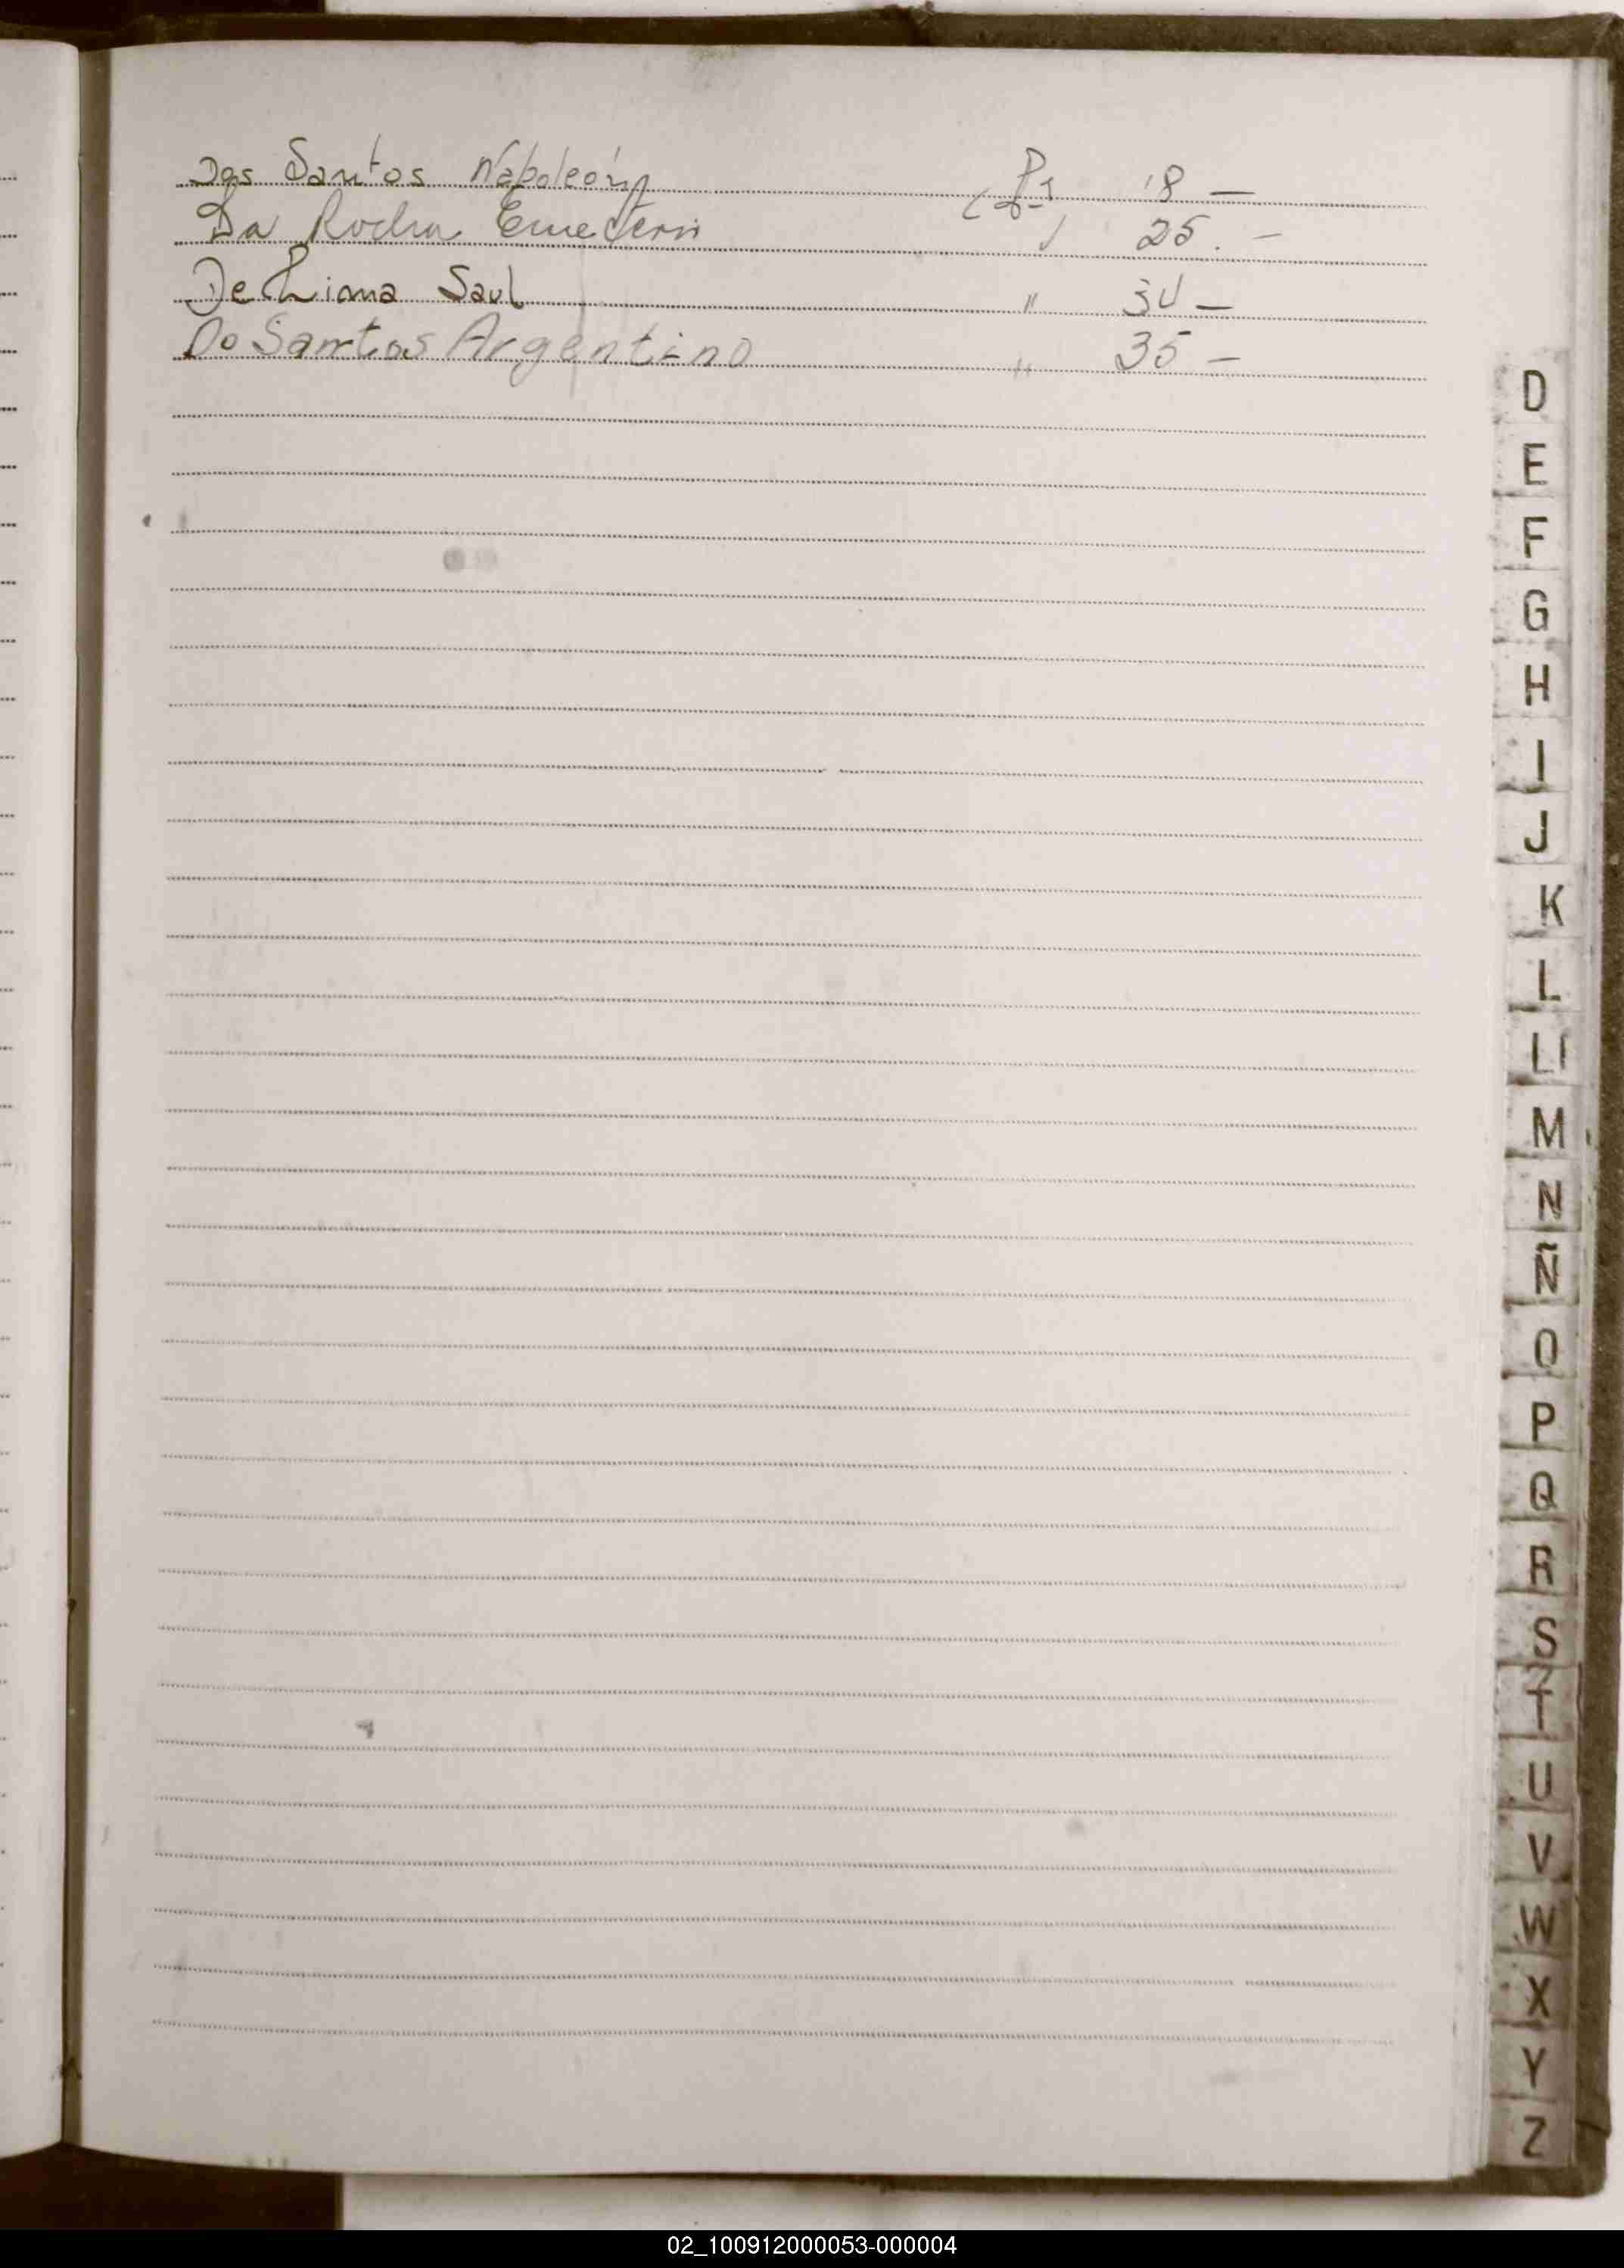 Dos Santos Napoleón Pg 18 —
Da Rocha Emeterio 25. —
De Lima Saul " 34 —
Do Santos Argentino " 35 —
D
E
F
G
H
I
J
K
L
Ll
M
N
Ñ
O
P
Q
R
S
T
U
V
W
X
Y
Z
02_100912000053-000004